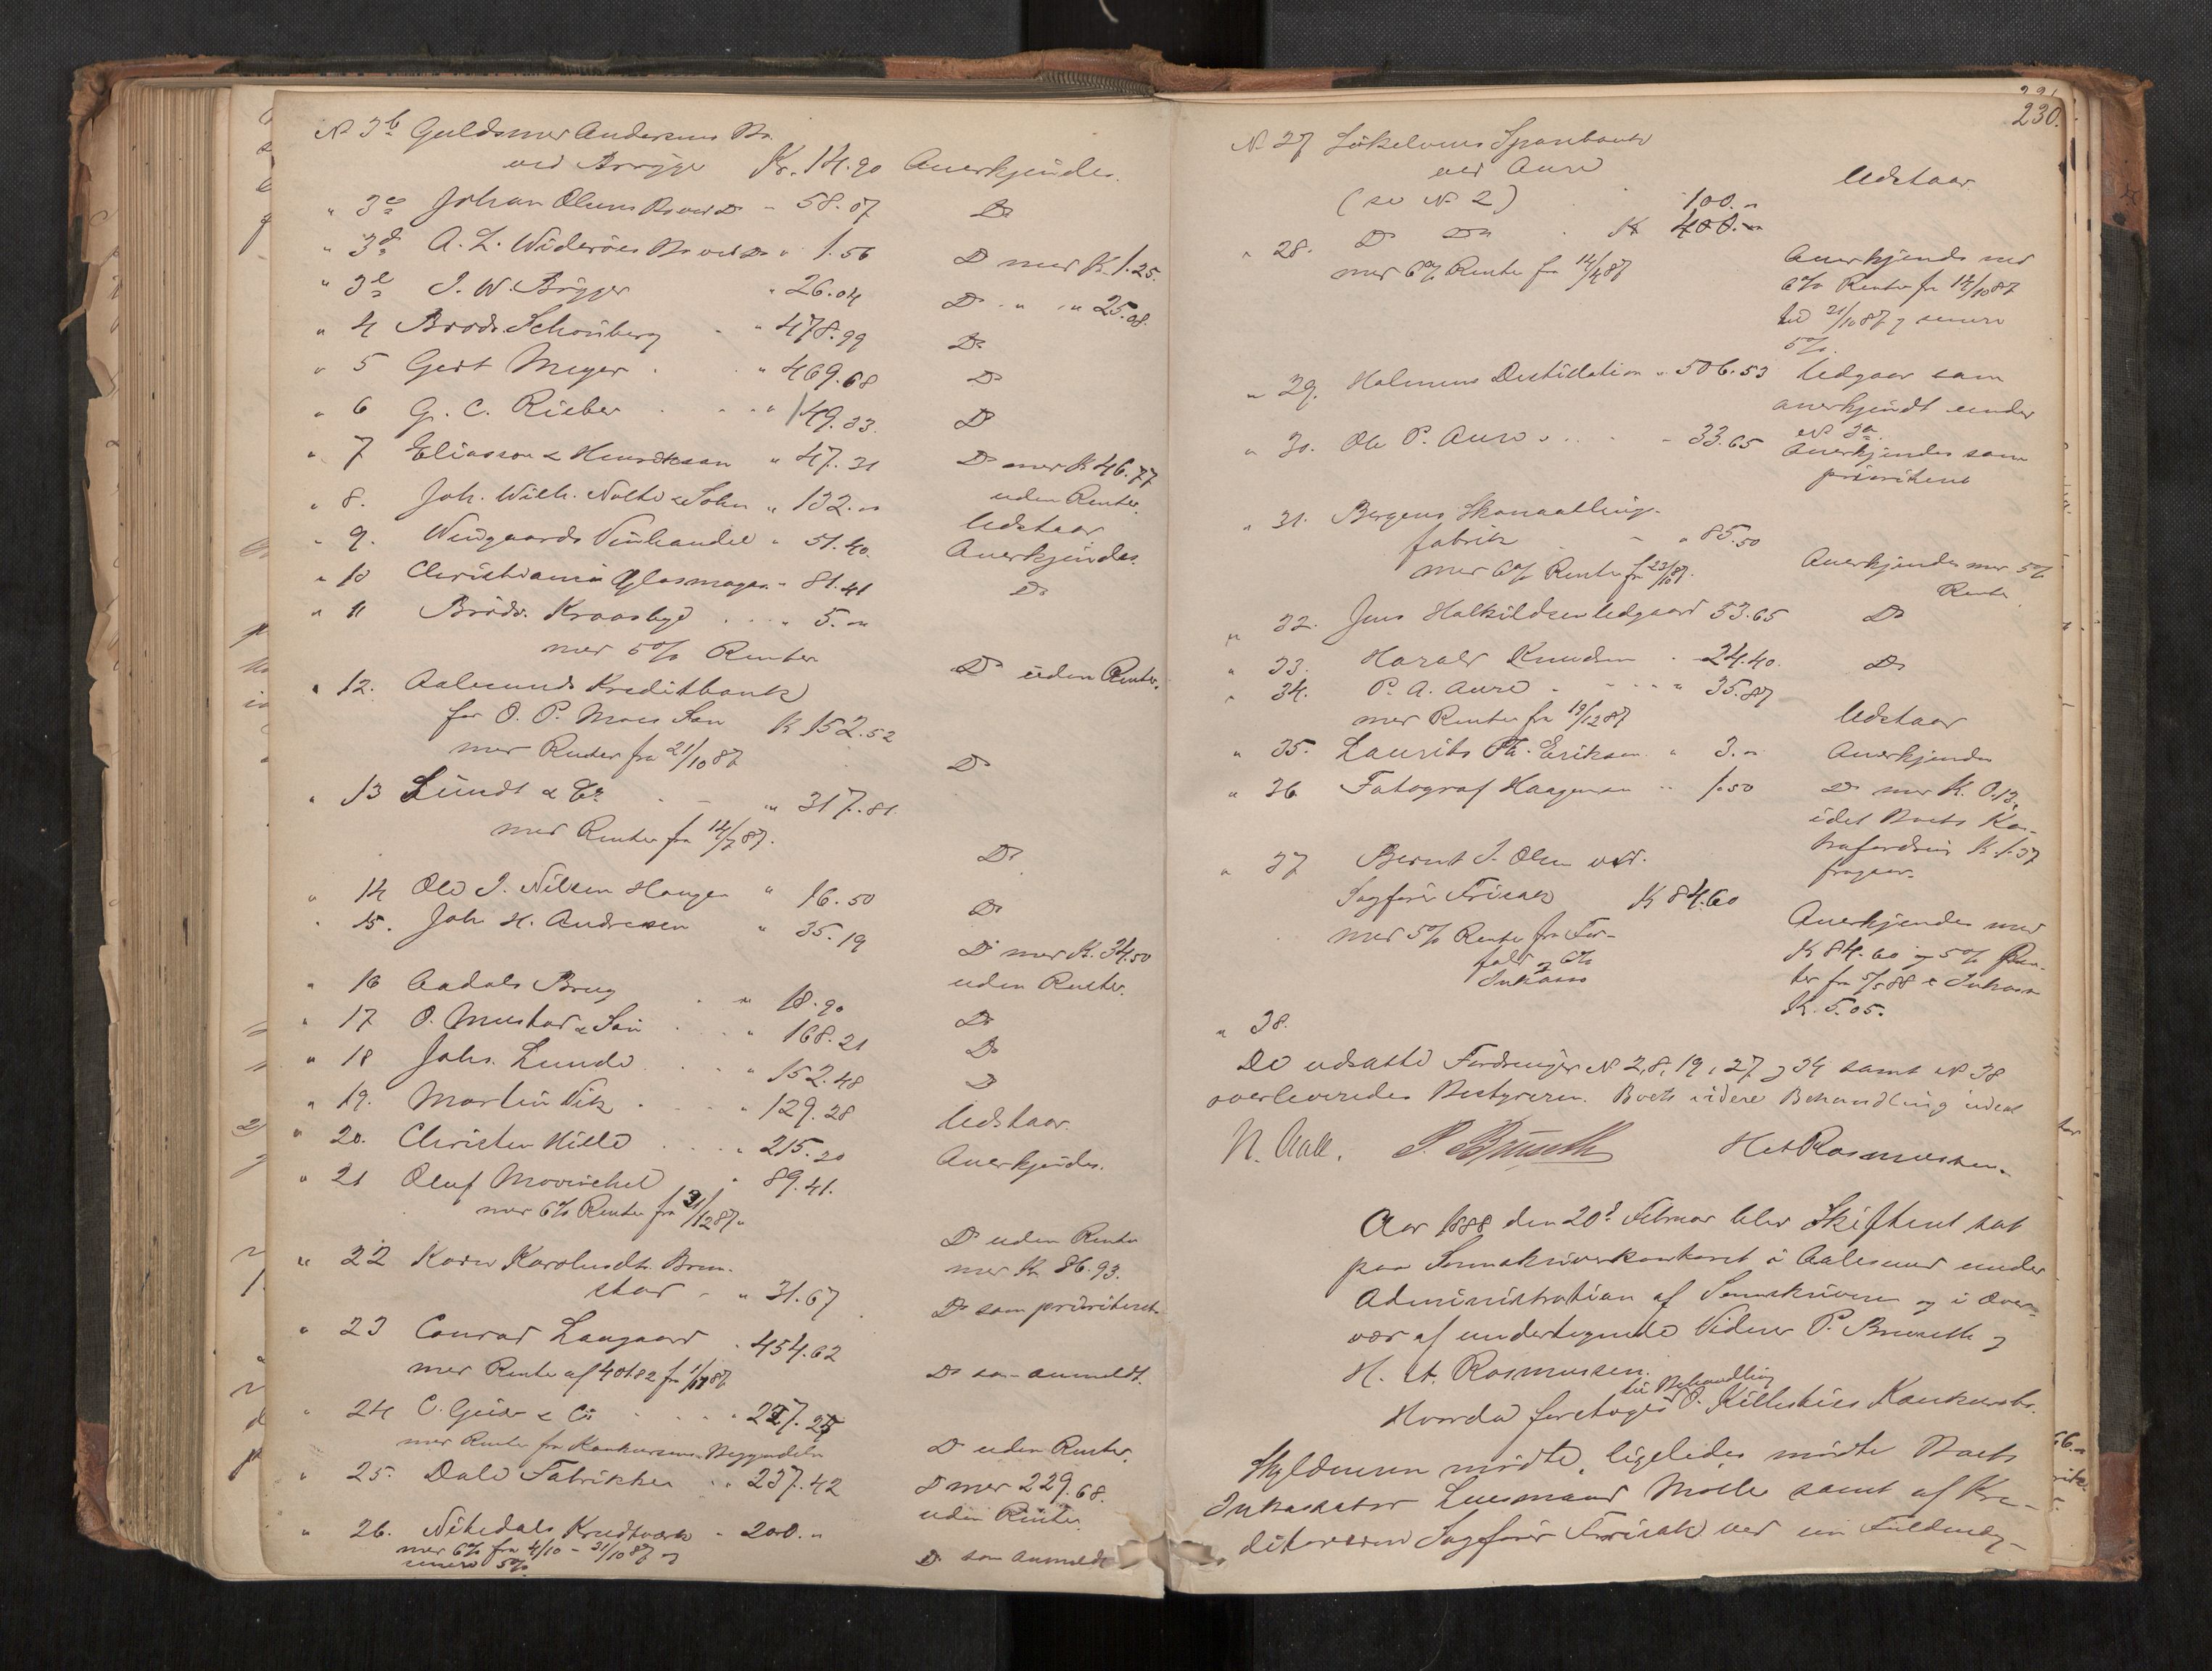 N 3b Guldsmed Andersens Bo
ved Brygge Kr. 14.90 Anerkjendes.
" 3c Johan Olsens Bo ved Do - 58.07 Do
" 3d A. L. Widerøes Bo ved Do " 1.56 Do med K. 1.25.
" 3e J. W. Brygger " 26.04 Do " " 25.08.
" 4 Brødr. Schönberg - " 478.99 Do
" 5 Gert Meyer . " 469.68 Do
" 6 G. C. Rieber . . . " 149.33. Do
" 7 Eliasson & Henriksen " 47.31 Do med K 46.77
uden Renter.
" 8. Joh. Wilh. Nolte & Sohn " 132. " Udstaar
" 9. Wingaards Vinhandel " 51.40. Anerkjendes.
" 10 Christiania Glasmagas. " 81.41 Do
" 11 Brødr. Kraasbye . . . " 5. "
med 5% Renter Do uden Renter.
" 12. Aalesunds Kreditbank
for O. P. Moes Søn K 152.52
med Renter fra 21/10 87 Do
" 13 Lundt & Co . - " 317.81.
med Renter fra 14/7 87. Do
" 14 Ole J. Nilsen Haugen " 16.50 Do
" 15. Joh H. Andresen " 35.19 Do med K. 34.50
uden Renter.
" 16 Aadals Brug . " 18.90 Do
" 17 O. Mustad & Søn . . " 168.21 Do
" 18 Johs. Lunde . . . " 152.48 Do
" 19. Martin Vik . . " 129.28 Udstaar.
" 20. Christen Hille . . . " 215.20 Anerkjendes.
" 21 Oluf Mowinckel " 89.41.
med 6% Renter fra 31/12 87. Do uden Renter
med K 86.93.
" 22 Karen Karolusdtr. Brun-
stad - " 31.67 Do som prioriteret
" 23 Conrad Langaard . 454.62
med Renter af 401.82 fra 1/11 87 Do som anmeldt.
" 24 C. Geijer & Co . . . " 227.25
med Renter fra Konkursens Begyndelse Do uden Renter.
" 25. Dale Fabrikker . " 237.42 Do med 229.68.
uden Renter.
" 26. Nitedals Krudtværk " 200. "
med 6% fra 4/10 - 21/10 87 og
senere 5% Do som anmeldt
230.
N 27 Søkelvens Sparebank
ved Aure
(se N 2) . 100. " Udstaar.
" 28. Do Do . K 400. "
med 6% Renter fra 14/4 87 Anerkjendes med
6% Renter fra 14/10 87
til 21/10 87 og senere
5%.
" 29. Holmens Destillation " 506.53 Udgaar som
anerkjendt under
N 3a.
" 30. Ole P. Aure . . . . - 33.65 Anerkjendes som
prioriteret
" 31. Bergens Skosaalings-
fabrik . - " 85.50
med 6% Renter fra 23/10 87. Anerkjendes med 5%
Rente
" 32. Jens Halkildsen Udgaard 53.65 Do
" 33. Harald Knudsen . 24.40. Do
" 34. P. A. Aure . - - - " 35.87
med Renter fra 19/12 87 Udstaar
" 35. Laurits Th. Eriksen " 3. " Anerkjendes
" 36. Fotograf Haagensen " 1.50 Do med K. 0.13,
idet Boets Kon-
trafordring K. 1.37
fragaar.
" 37 Bernt J. Olsen ved.
Sagfører Frisak K 84.60
med 5% Renter fra For-
fald og 6%
Inkasso Anerkjendes med
K 84.60 og 5% Ren-
ter fra 5/1 88 & Inkasso
K. 5.05.
" 38.
De udsatte Fordringer N 2, 8, 19, 27 og 34 samt N 38
overleveredes Bestyreren. Boets videre Behandling udsat
N. Aall. P. Brunseth Het Rasmussen.
Aar 1888 den 20d Februar blev Skifteret sat
paa Sorenskriverkontoret i Aalesund under
Administration af Sorenskriveren og i Over-
vær af undertegnede Vidner P. Brunseth og
H. Et. Rasmussen.
Hvorda foretoges til Behandling O. Killestuens Konkursbo.
Skyldneren mødte, ligeledes mødte Boets
Inkassator Lensmand Molle samt af Kre-
ditorerne Sagfører Frisak ved en Fuldmæg-